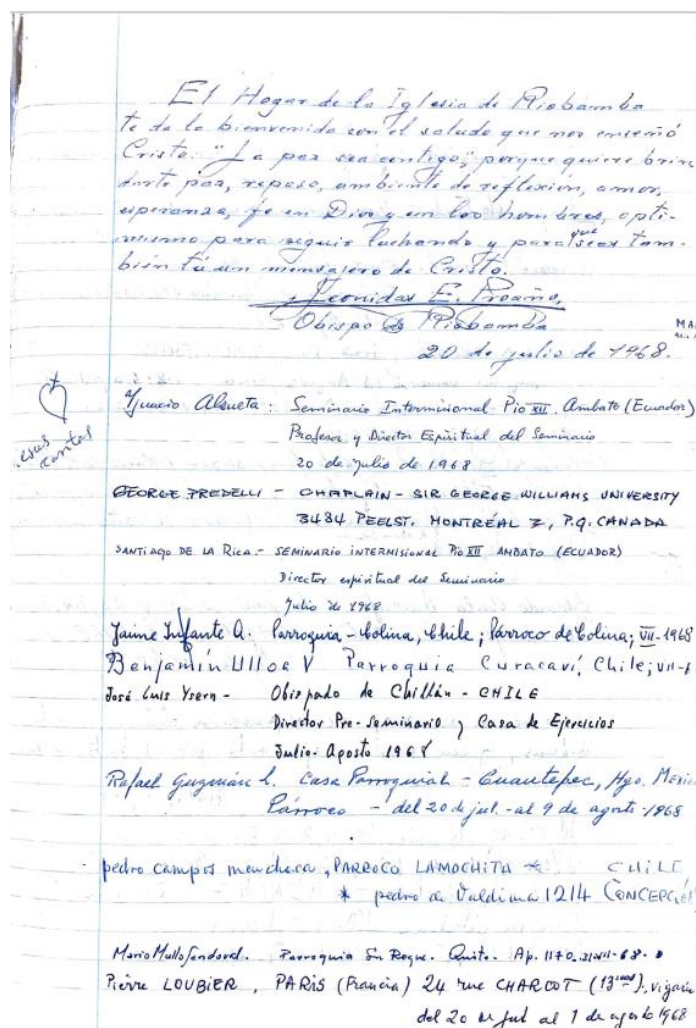 El Hogar de la Iglesia de Riobamba
te da la bienvenida con el saludo que nos enseñó
Cristo: "La paz sea contigo", porque quiere brin
darte paz, reposo, ambiente de reflexión, amor,
esperanza, fe en Dios y en los hombres, opti-
mismo para seguir luchando y para que seas tam-
bién tú un mensajero de Cristo.
Leonidas E. Proaño,
Obispo de Riobamba
20 de julio de 1968.
MA
Jesus
caritas
Ignacio Alsueta: Seminario Intermisional Pio XII. Ambato (Ecuador)
Profesor y Director Espiritual del Seminario
20 de julio de 1968
GEORGE PREDELLI - CHAPLAIN - SIR GEORGE WILLIAMS UNIVERSITY
3484 PEEL ST. MONTRÉAL 2, P.Q. CANADA
SANTIAGO DE LA Rica.- SEMINARIO INTERMISIONAL Pio XII AMBATO (ECUADOR)
Director espiritual del Seminario
Julio de 1968
Jaime Infante A. Parroquia - Colina, Chile; Párroco de Colina; VII-1968
Benjamín Ulloa V Parroquia Curacaví, Chile; VII-6
José Luis Ysern - Obispado de Chillán - CHILE
Director Pre-seminario y Casa de Ejercicios
Julio-Agosto 1968
Rafael Guzmán L. Casa Parroquial - Cuautepec, Hgo. Mexic
Párroco - del 20 de jul. - al 9 de agosto -1968
pedro campos menchaca, PARROCO LAMOCHITA * CHILE
* pedro de Valdivia 1214 CONCEPCIÓN
Mario Mullo Sandoval. Parroquia Sn Roque. Quito. Ap. 1170.
Pierre LOUBIER, PARIS (Francia) 24 rue CHARCOT (13eme), vigario
del 20 de jul al 1 de agosto 1968